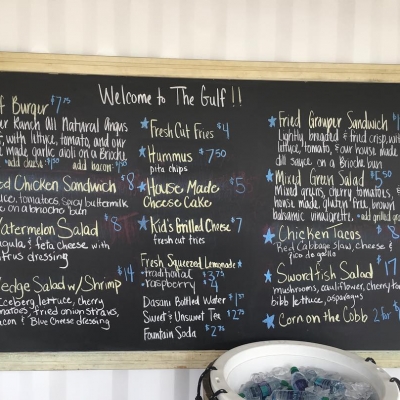 Welcome to The Gulf !!
f Burger $7.75
er Ranch All Natural Angus
with lettuce, tomato, and our
made garlic aioli on a Brioche
add bacon
ed Chicken Sandwich $8
tomatoes, spicy buttermilk
on a brioche bun
Watermelon Salad $8
ugula & feta cheese with
itrus dressing
edge Salad w/ Shrimp $14
Iceberg lettuce, cherry
matoes, fried onion straws,
acon & Blue Cheese dressing
Fresh Cut Fries $4
Hummus $7.50
pita chips
House Made $5
Cheese Cake
Kid's Grilled Cheese $7
fresh cut fries
Fresh Squeezed Lemonade
traditional $3.75
raspberry $4
Dasani Bottled Water
Sweet & Unsweet Tea $2.75
Fountain Soda $2.75
Fried Grouper Sandwich
Lightly breaded & fried crisp, with
lettuce, tomato, & our house made
dill sauce on a Brioche bun
Mixed Green Salad $5.50
Mixed greens, cherry tomatoes, &
house made gluten free brown
balsamic vinaigrette. +add grilled
Chicken Tacos $8
Red Cabbage slaw, cheese &
pico de gallo
Swordfish Salad $17
mushrooms, cauliflower, cherry to
bibb lettuce, asparagus
Corn on the Cobb 2 for